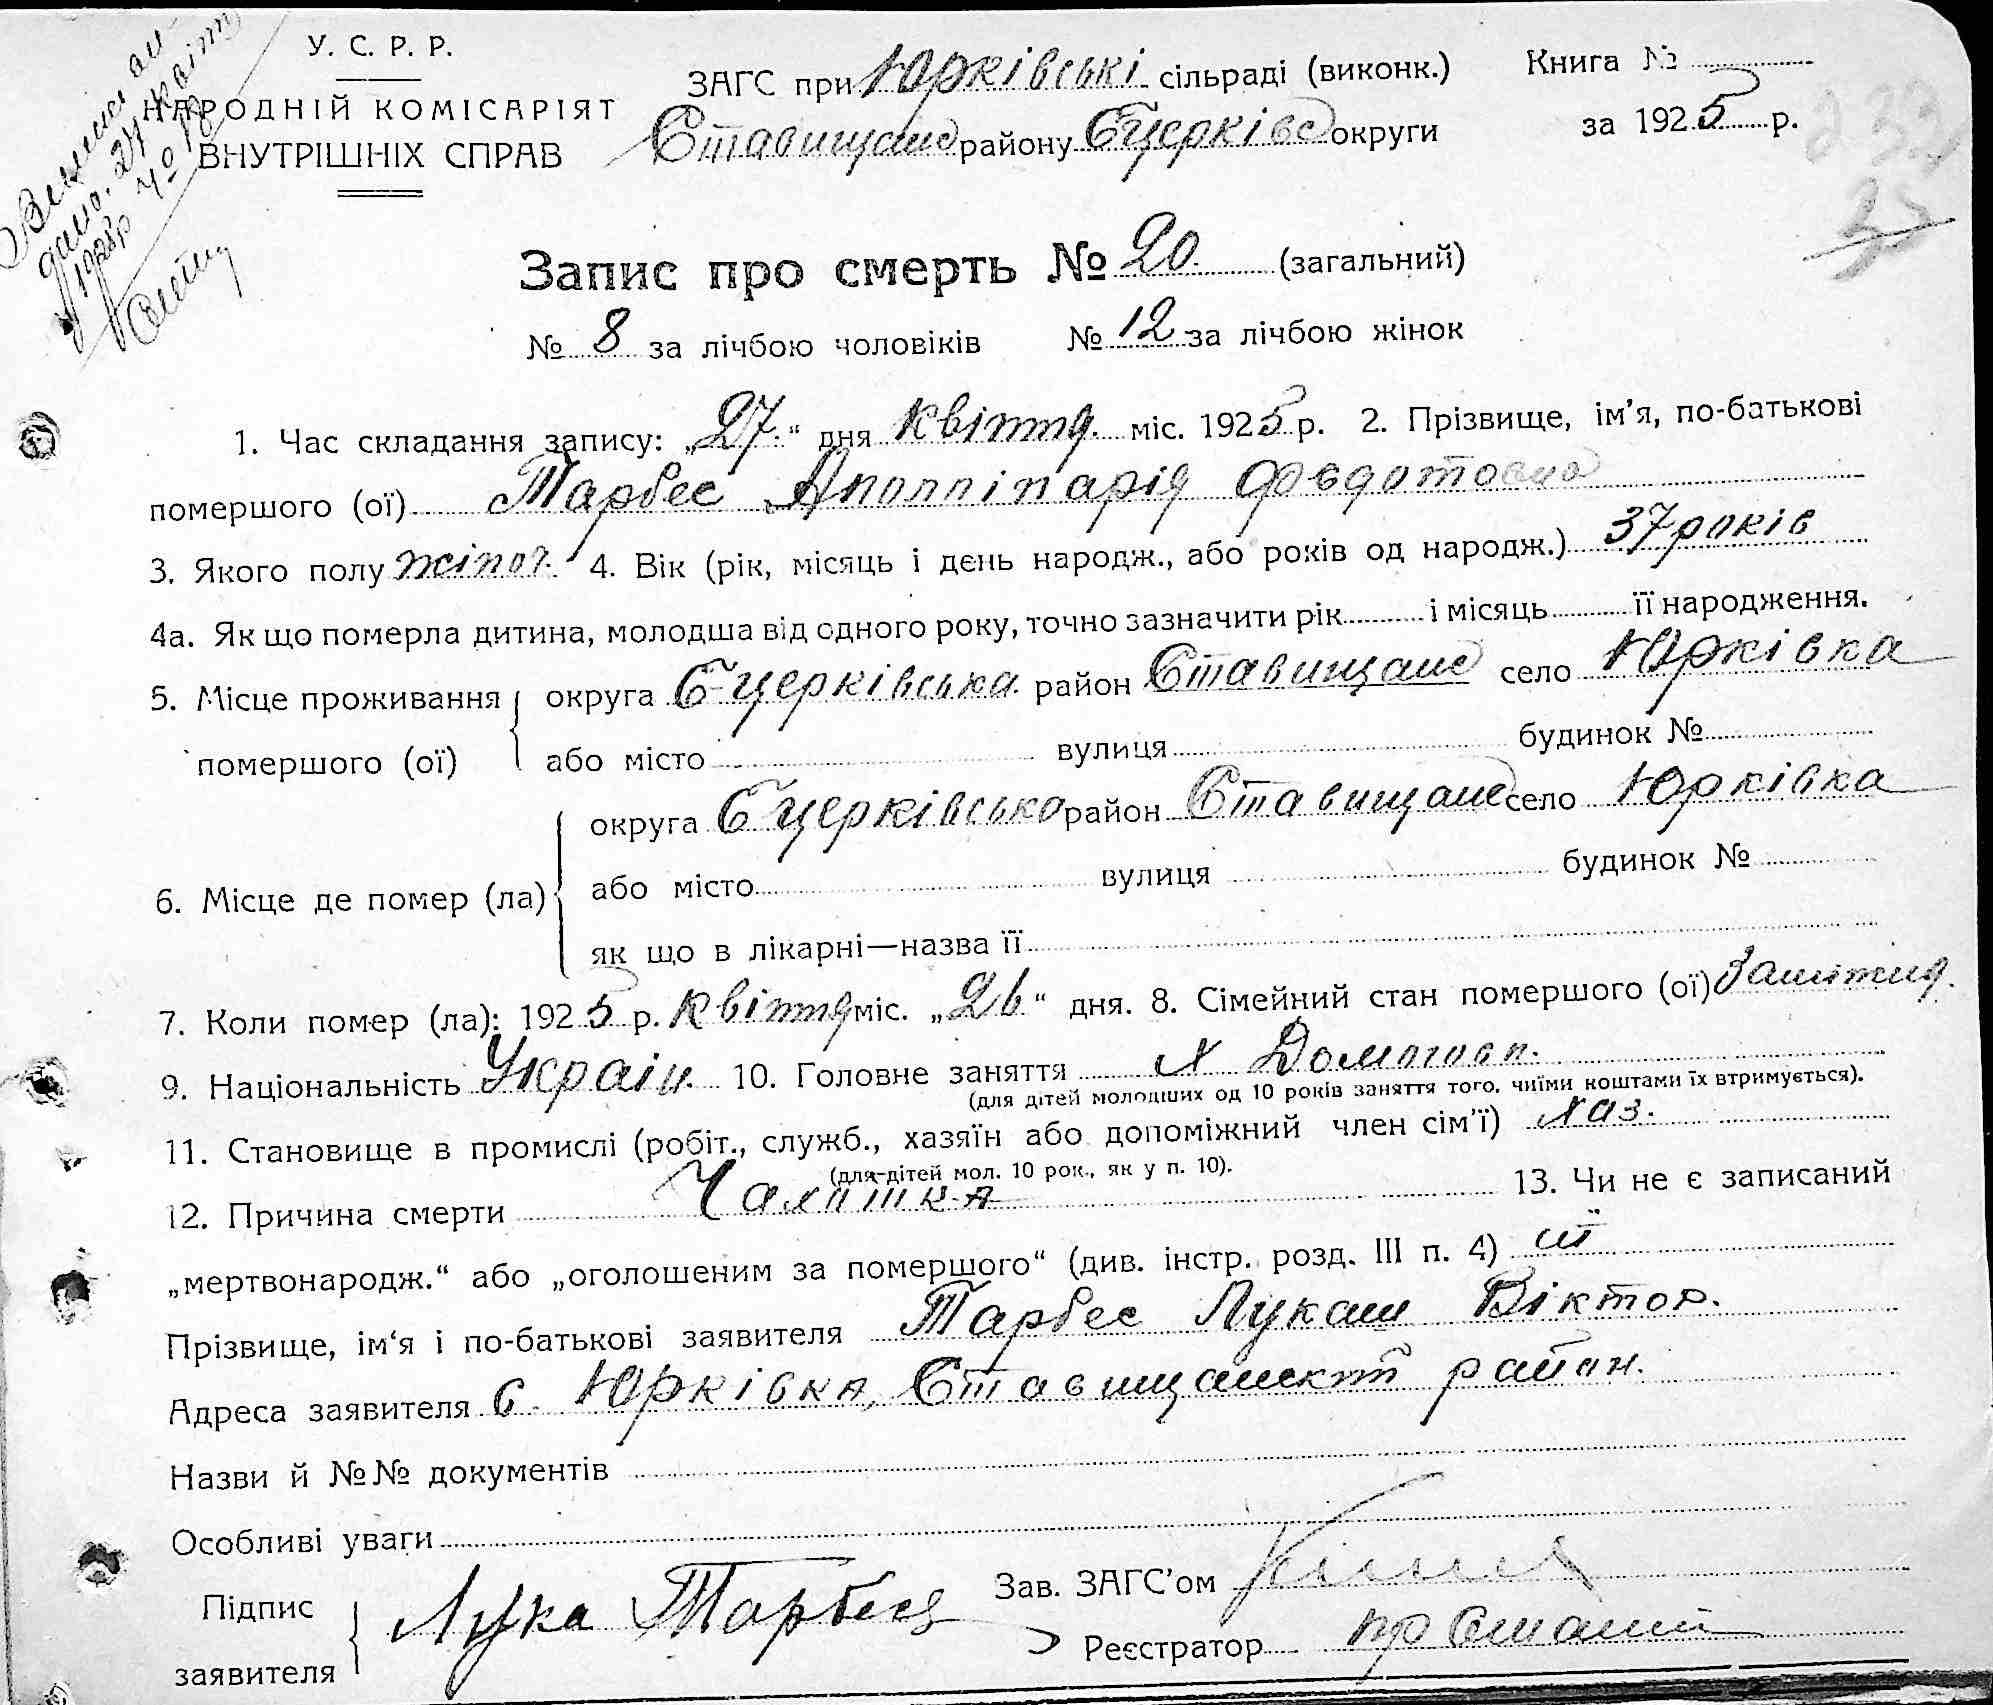 У. С. Р. Р.
НАРОДНІЙ КОМІСАРІЯТ
ВНУТРІШНІХ СПРАВ
ЗАГС при Юрківські сільраді (виконк.)
Ставищанс району Бцерківс округи
Книга №
за 1925 р.
Запис про смерть № 20 (загальний)
№ 8 за лічбою чоловіків № 12 за лічбою жінок
1. Час складання запису: „27“ дня квітня міс. 1925 р. 2. Прізвище, ім'я, по-батькові
помершого (ої) Тарбес Аполлінарія Федотовна
3. Якого полу жіноч. 4. Вік (рік, місяць і день народж., або років од народж.) 37 років
4а. Як що померла дитина, молодша від одного року, точно зазначити рік і місяць її народження.
5. Місце проживання округа Б-церківська район Ставищанс село Юрківка
помершого (ої) або місто вулиця будинок №
округа Б церківсько район Ставищанс село Юрківка
6. Місце де помер (ла) або місто вулиця будинок №
як що в лікарні—назва її
7. Коли помер (ла): 1925 р. квітня міс. „26“ дня. 8. Сімейний стан помершого (ої)
9. Національність Україн. 10. Головне заняття х Домогосп.
(для дітей молодших од 10 років заняття того, чиїми коштами їх втримується).
11. Становище в промислі (робіт., служб., хазяїн або допоміжний член сім'ї) хаз.
(для дітей мол. 10 рок., як у п. 10).
12. Причина смерти Чахотка 13. Чи не є записаний
„мертвонародж.“ або „оголошеним за помершого“ (див. інстр. розд. III п. 4) ні
Прізвище, ім'я і по-батькові заявителя Тарбес Лукаш Віктор.
Адреса заявителя с. Юрківка, Ставищанск район.
Назви й №№ документів
Особливі уваги
Підпис заявителя Лука Тарбес
Зав. ЗАГС'ом
Реєстратор